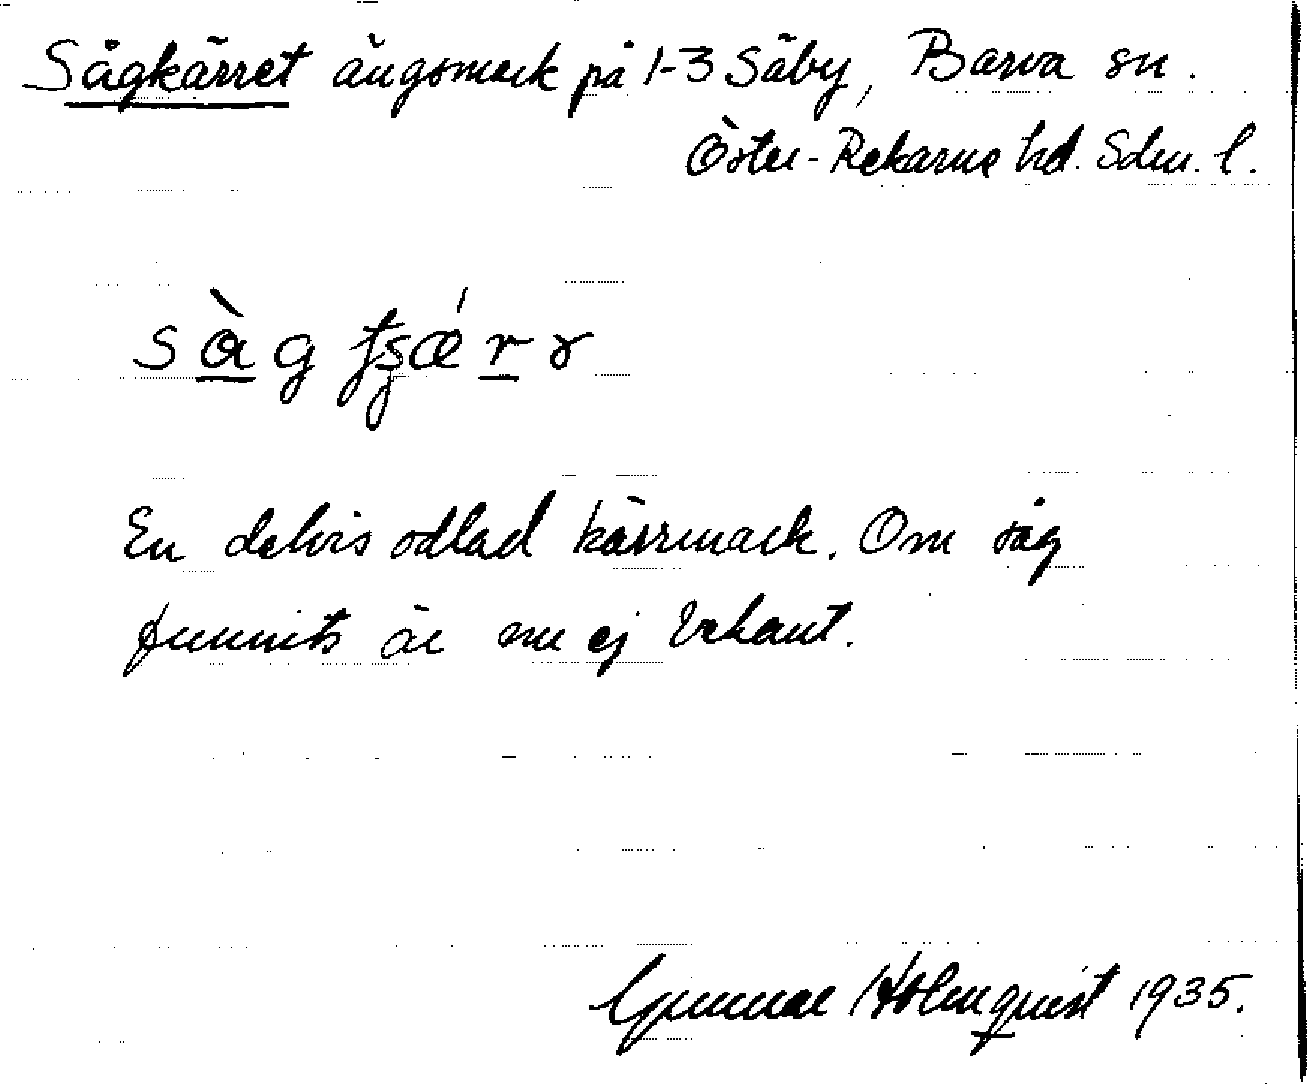 Sågkärret ängsmark på 1-3 Säby, Barva sn.
Öster-Rekarne hd. Sdm. l.
En delvis odlad kärrmark. Om såg
funnits är nu ej bekant.
Gunnar Holmquist 1935.